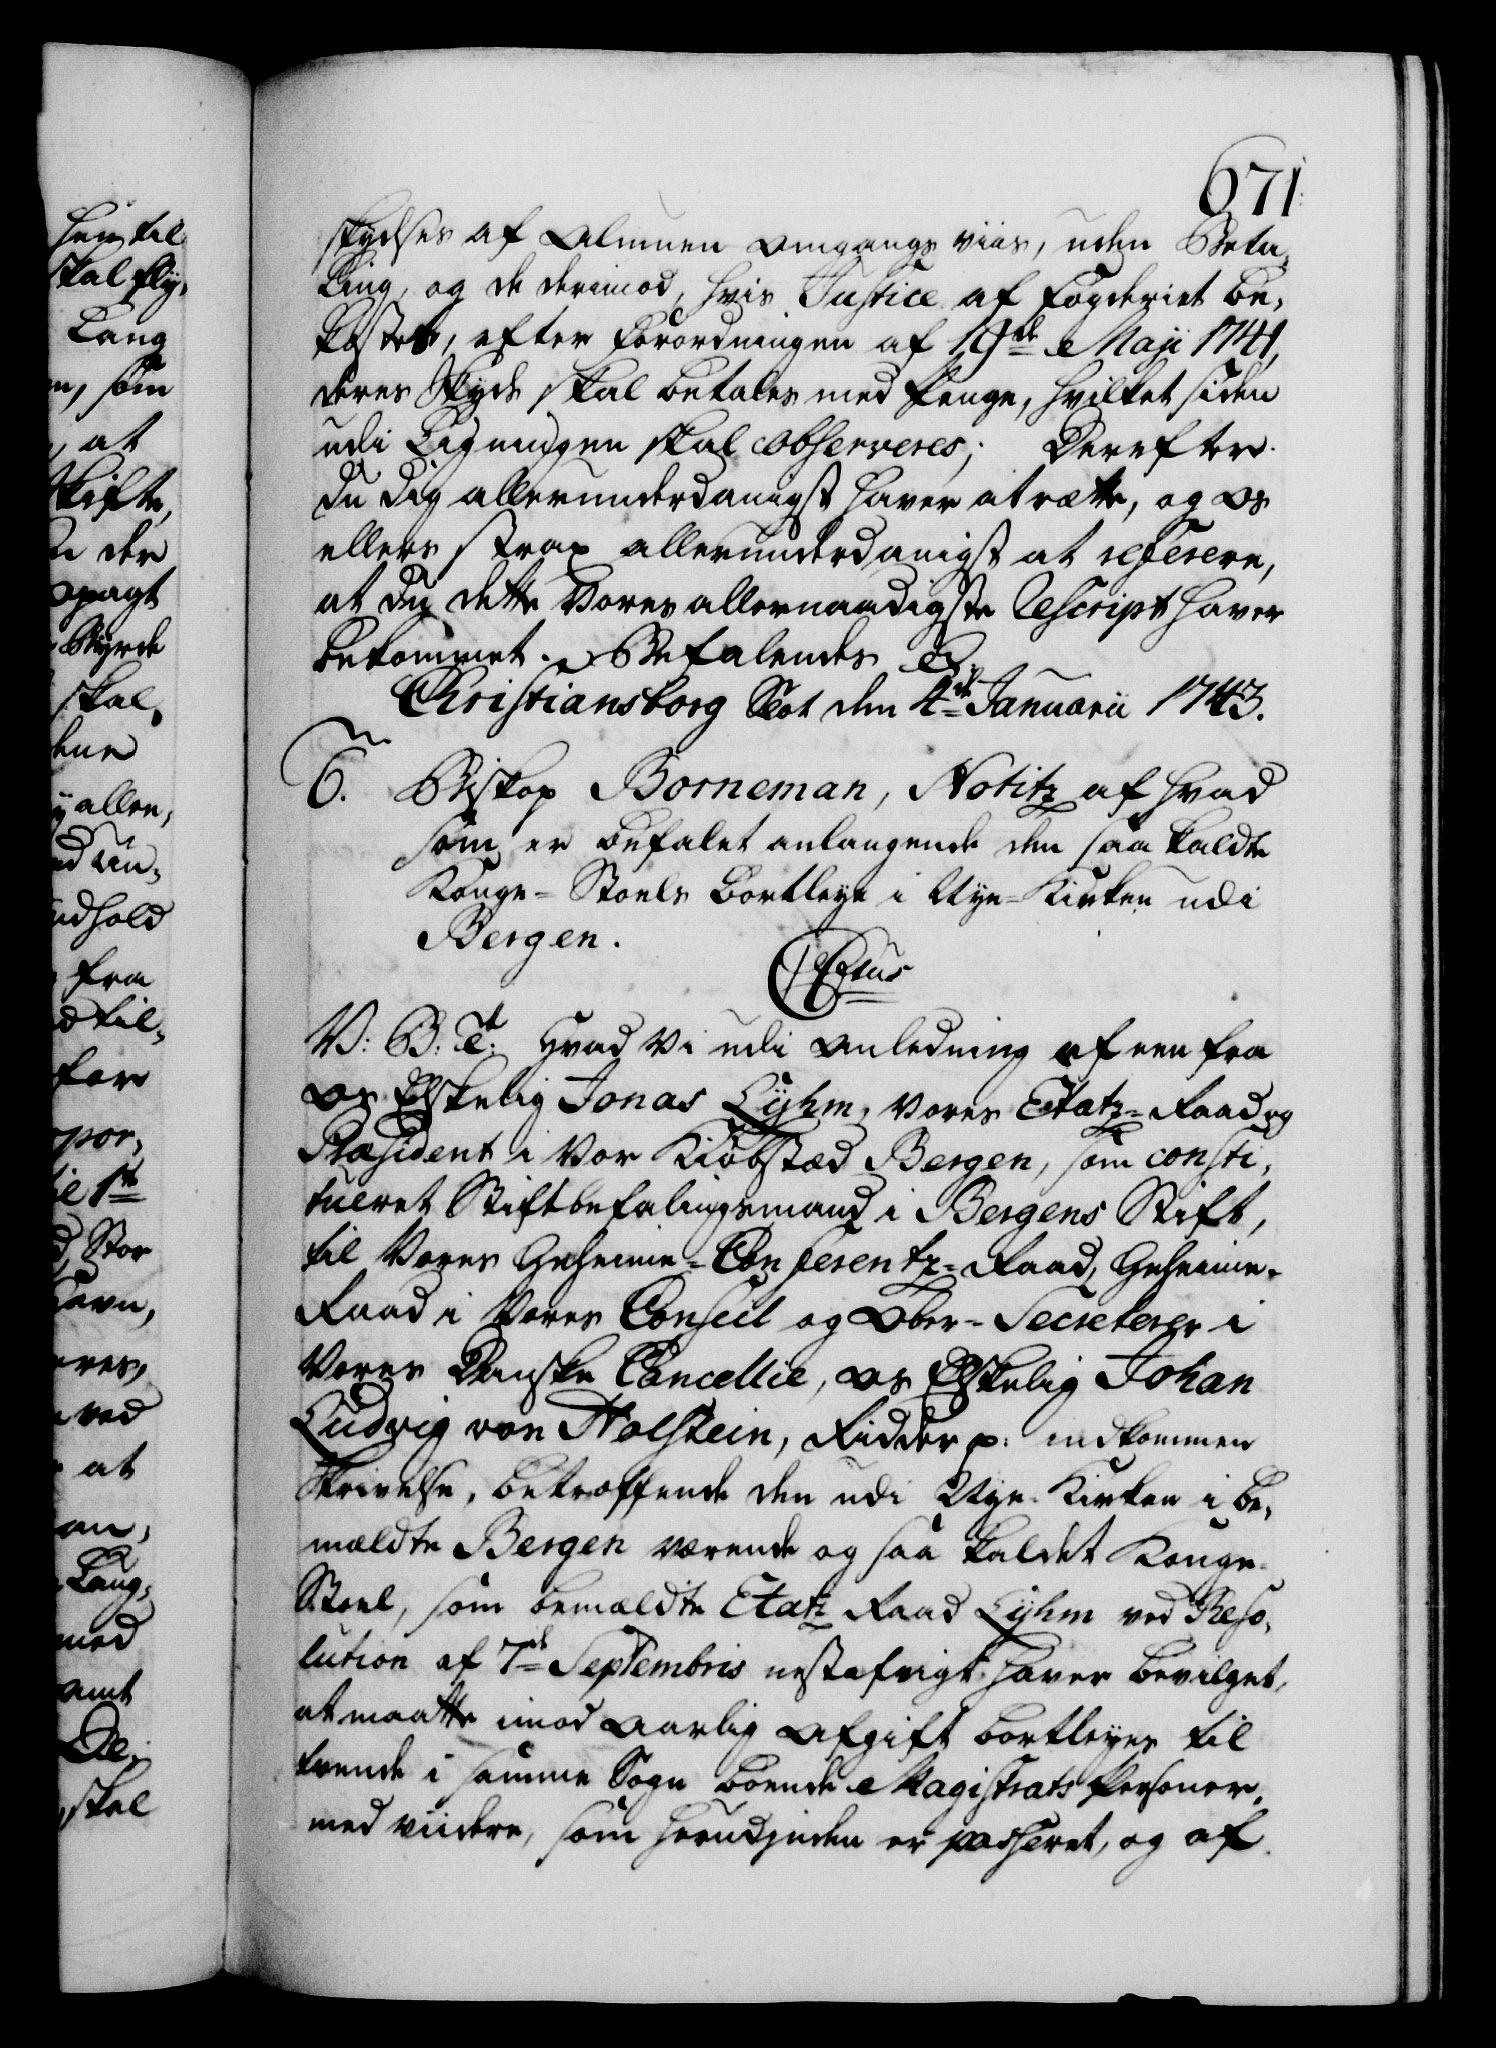 671
skydses af Almuen omgangs viis, uden Beta-
ling, og de derimod, hvis Justice af Fogderiet be-
kostes, efter Forordningen af 19de Maji 1741,
deres Skyds skal betales med Penge, hvilket siden
udi Ligningen skal observeres; Derefter
du dig allerunderdanigst haver at rætte, og os
ellers strax allerunderdanigst at referere,
at du dette Vores allernaadigste Rescript haver
bekommet. Befalendes &c.
Christiansborg Slot den 4de Januarii 1743.
6. Biskop Borneman, Notitz af hvad
som er befalet anlangende den saa kaldte
Konge-Stoels bortleye i Nye-Kirken udi
Bergen.
V: B: T: Hvad Vi udi Anledning af een fra
os Elskelig Jonas Lyhm, Vores Etatz-Raad og
Præsident i Vor Kiøbstæd Bergen, som consti-
tueret Stiftbefalingsmand i Bergens Stift,
til Vores Geheime-Conferentz-Raad, Geheime-
Raad i Vores Conseil og Ober-Secreterer i
Vores Danske Cancellie, os Elskelig Johan
Ludvig von Holstein, Ridder p: indkommen
Skrivelse, betræffende den udi Nye-Kirken i be-
mældte Bergen værende og saa kaldet Konge-
Stoel, som bemældte Etatz Raad Lyhm ved Reso-
lution af 7de Septembris nestafvigt haver bevilget,
at maatte imod aarlig Afgift bortleyes til
trende i samme Sogn boende Magistrats Personer,
med viidere, som herudjnden er passeret, og af
hen til
skal fly-
Lang
som
at
der
Byrde
skal
allen,
indhold
fra
til-
for
1ste
Stor
ved
at
Lang-
med
amt
skal